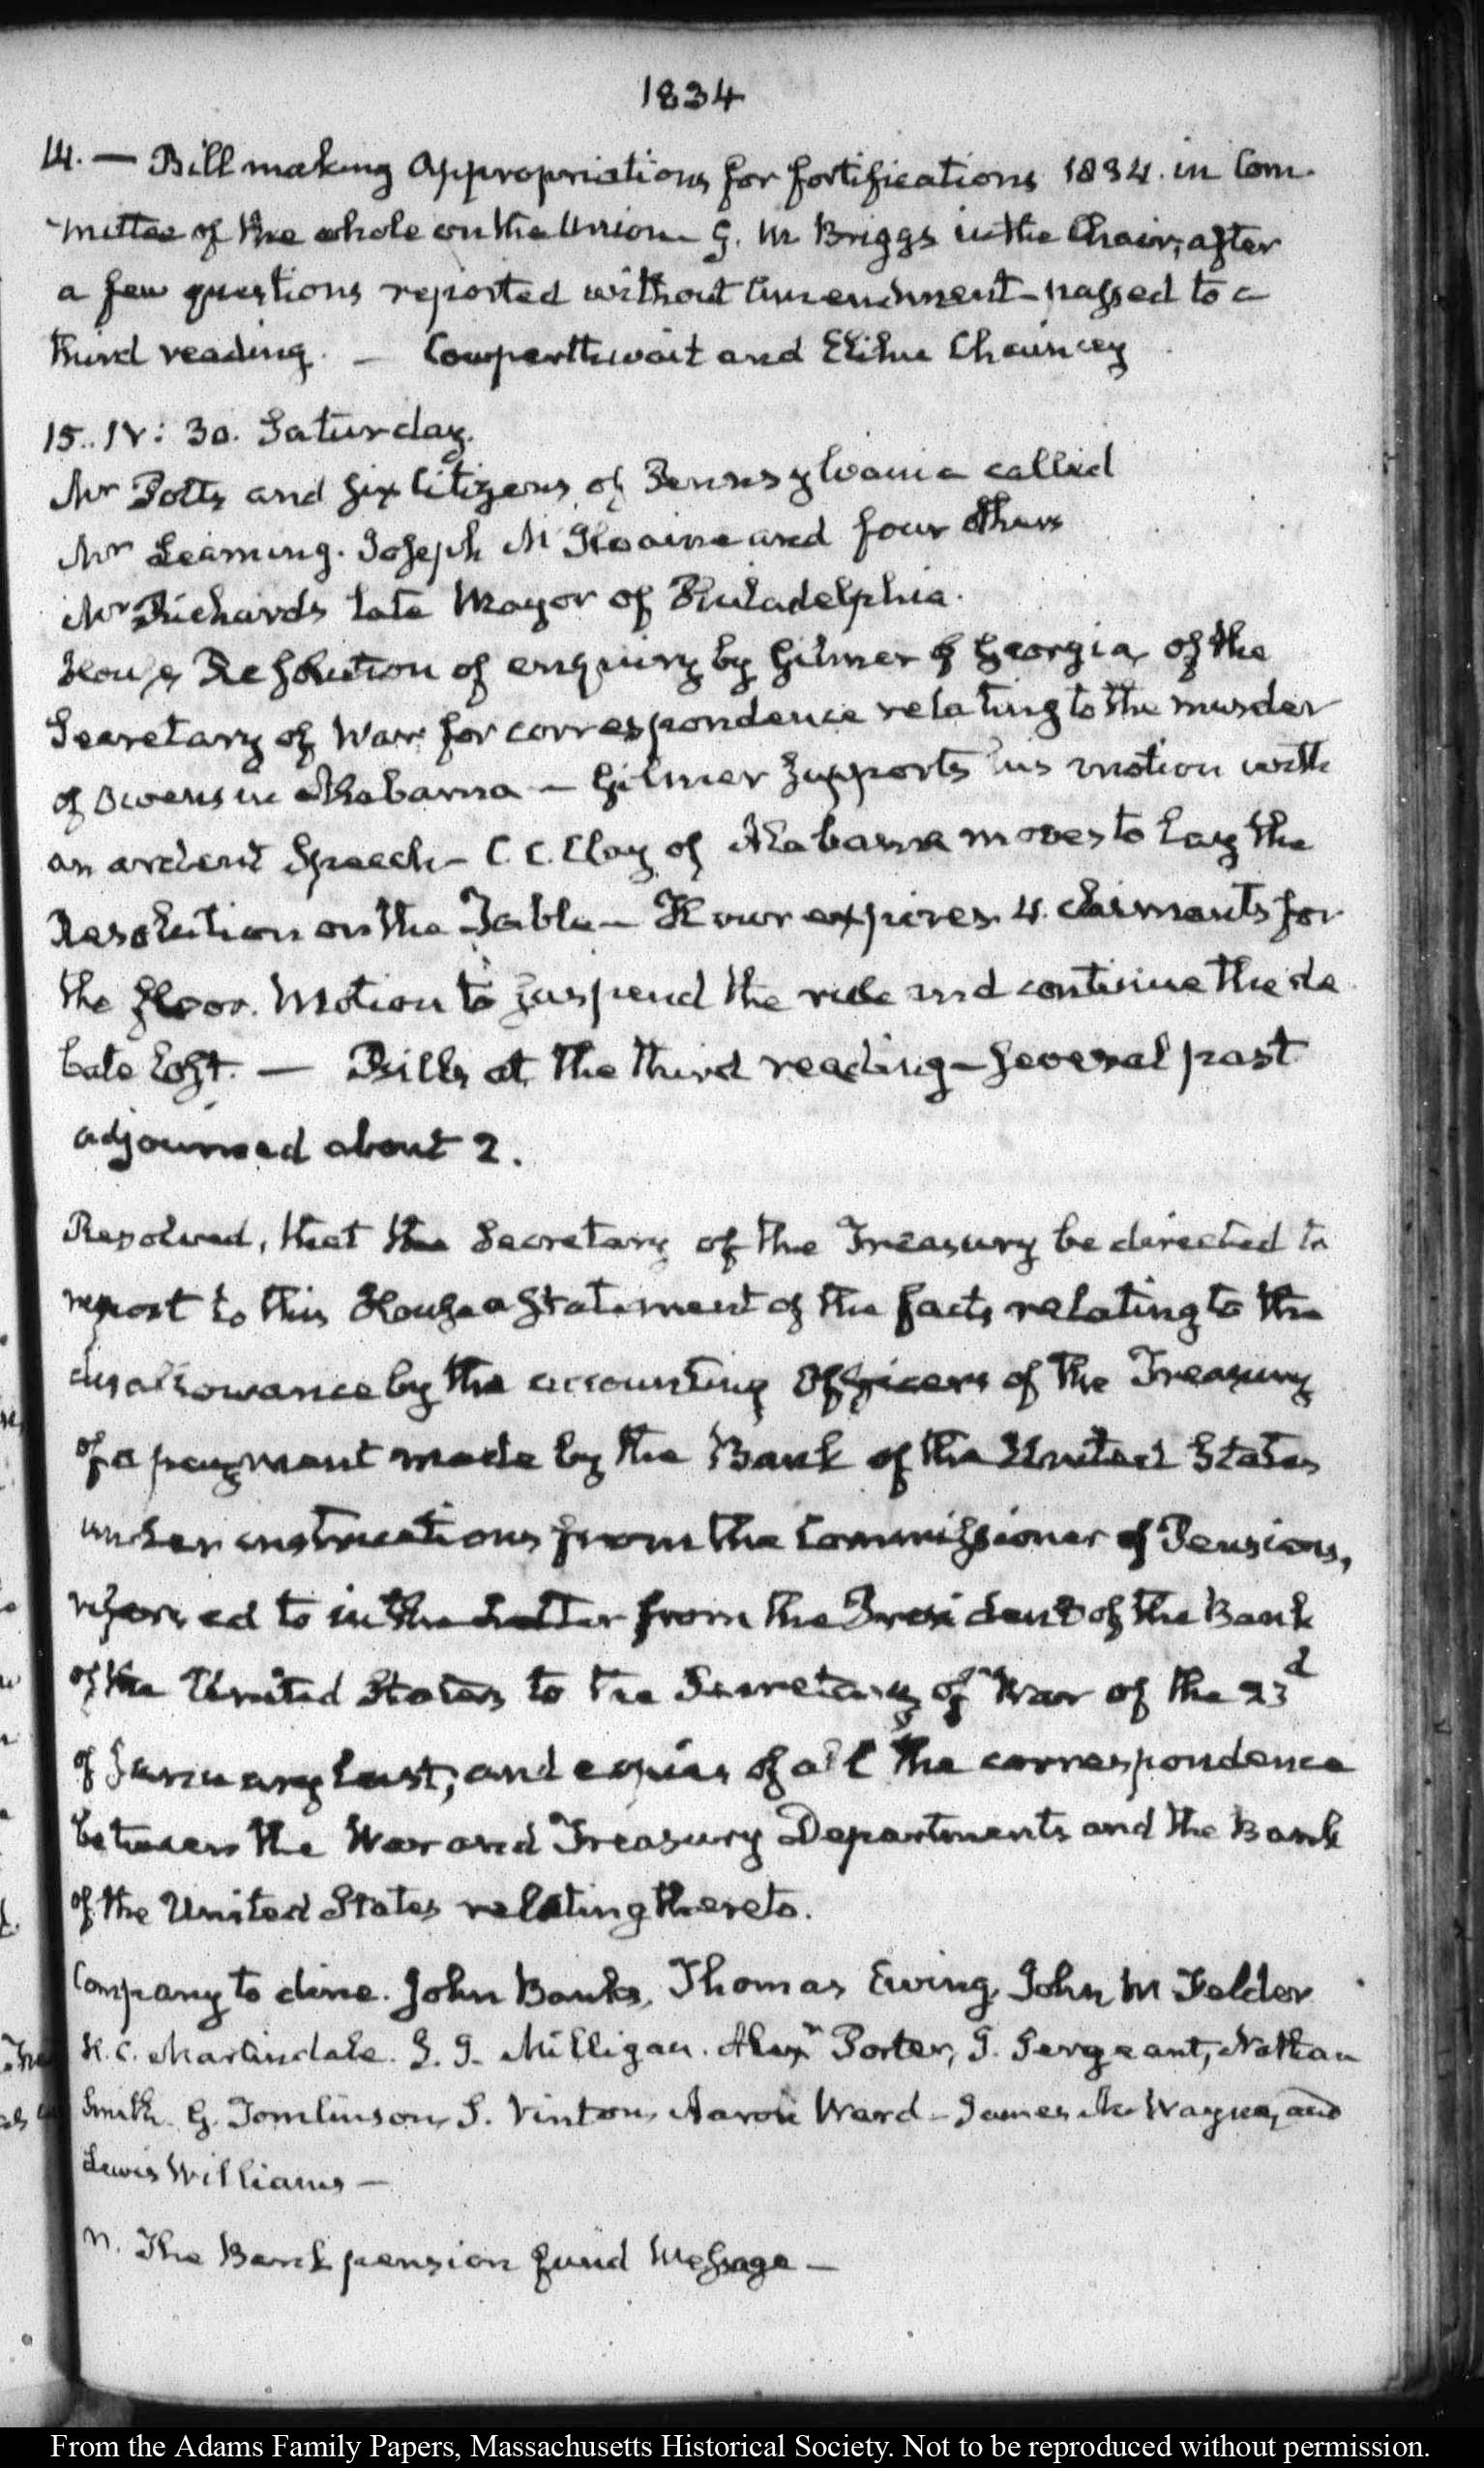 1834
14. — Bill making Appropriations for fortifications 1834. in Com-
mittee of the whole on the Union G. M Briggs in the Chair, after
a few questions reported without Amendment - passed to a
third reading. — Cowperthwait and Elihu Chauncey
15. IV: 30. Saturday.
Mr Potts and six Citizens of Pennsylvania called
Mr Leaming. Joseph McIlvaine and four others
Mr Richards late Mayor of Philadelphia.
House Resolution of enquiry by Gilmer of Georgia, of the
Secretary of War for correspondence relating to the murder
of Owens in Alabama — Gilmer supports his motion with
an ardent Speech — C. C. Clay of Alabama moves to lay the
Resolution on the Table — Hour expires. 4. claimants for
the floor. Motion to suspend the rule and continue the de
bate lost. — Bills at the third reading — several past
adjourned about 2.
Resolved, that the Secretary of the Treasury be directed to
report to this House a statement of the facts relating to the
disallowance by the accounting Officers of the Treasury
of a payment made by the Bank of the United States
under instructions from the Commissioner of Pensions,
referred to in the Letter from the President of the Bank
of the United States to the Secretary of War of the 23d
of January last; and copies of all the correspondence
between the War and Treasury Departments and the Bank
of the United States relating thereto.
Company to dine. John Banks, Thomas Ewing, John M Felder
H. C. Martindale. J. J. Milligan. Alexr Porter, J. Sergeant, Nathan
Smith. G. Tomlinson, S. Vinton, Aaron Ward - James M Wayne, and
Lewis Williams —
n. The Bank pension fund Message —
From the Adams Family Papers, Massachusetts Historical Society. Not to be reproduced without permission.